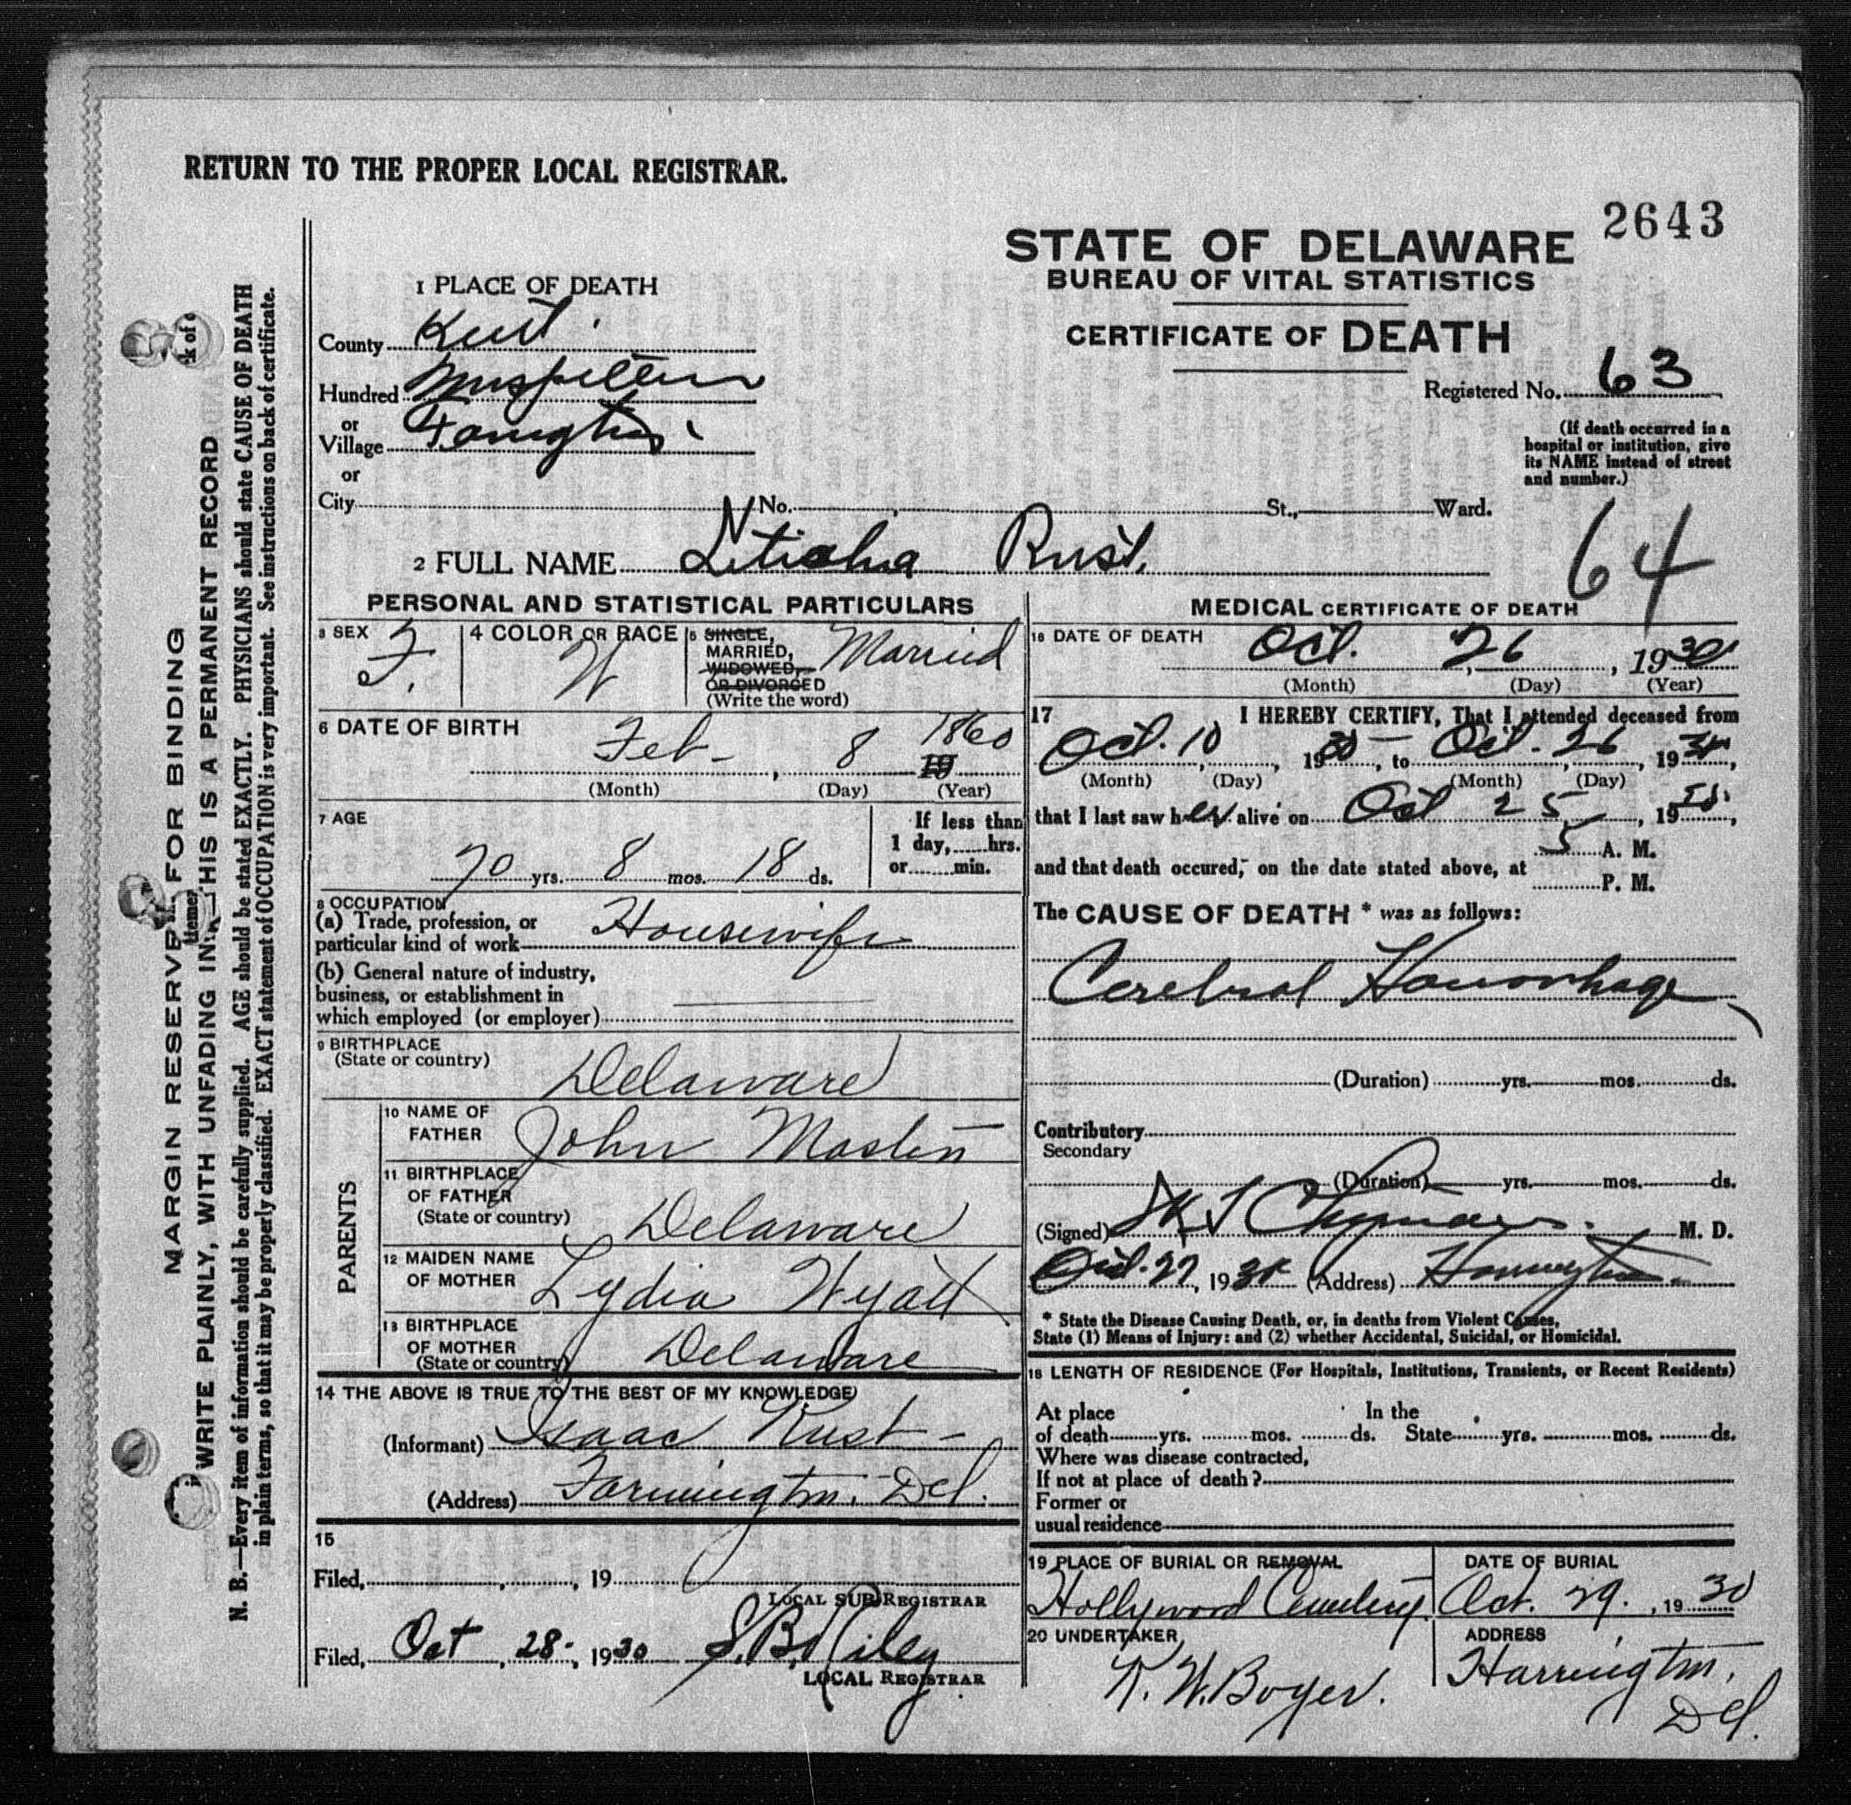 RETURN TO THE PROPER LOCAL REGISTRAR.
2643
STATE OF DELAWARE
BUREAU OF VITAL STATISTICS
CERTIFICATE OF DEATH
Registered No. 63
(If death occurred in a
hospital or institution, give
its NAME instead of street
and number.)
64
1 PLACE OF DEATH
County Kent.
Hundred
or
Village
or
City No. St., Ward.
2 FULL NAME Letisha Rust.
PERSONAL AND STATISTICAL PARTICULARS
3 SEX F.
4 COLOR OR RACE W
5 SINGLE,
MARRIED,
WIDOWED,
OR DIVORCED
(Write the word)
Married
6 DATE OF BIRTH
Feb - 8 1860
19
(Month) (Day) (Year)
7 AGE
70 yrs. 8 mos. 18 ds.
If less than
1 day, hrs.
or min.
8 OCCUPATION
(a) Trade, profession, or
particular kind of work Housewife
(b) General nature of industry,
business, or establishment in
which employed (or employer)
9 BIRTHPLACE
(State or country)
Delaware
PARENTS
10 NAME OF
FATHER
John Masten
11 BIRTHPLACE
OF FATHER
(State or country)
Delaware
12 MAIDEN NAME
OF MOTHER
Lydia Wyatt
13 BIRTHPLACE
OF MOTHER
(State or country)
Delaware
14 THE ABOVE IS TRUE TO THE BEST OF MY KNOWLEDGE
(Informant) Isaac Rust -
(Address) Farmington, Del.
15
Filed, , 19
LOCAL SUB REGISTRAR
Filed, Oct , 28 , 1930 S. B. Riley
LOCAL REGISTRAR
MEDICAL CERTIFICATE OF DEATH
16 DATE OF DEATH
Oct. 26 , 1930
(Month) (Day) (Year)
17 I HEREBY CERTIFY, That I attended deceased from
Oct. 10 , 1930 , to Oct. 26 , 1930 ,
(Month) (Day) (Month) (Day)
that I last saw her alive on Oct 25 , 19 ,
and that death occured, on the date stated above, at 5 A. M.
P. M.
The CAUSE OF DEATH * was as follows:
Cerebral
(Duration) yrs. mos. ds.
Contributory
Secondary
(Duration) yrs. mos. ds.
(Signed) M. D.
Oct. 27 , 1930 (Address) Harrington
* State the Disease Causing Death, or, in deaths from Violent Causes,
State (1) Means of Injury: and (2) whether Accidental, Suicidal, or Homicidal.
18 LENGTH OF RESIDENCE (For Hospitals, Institutions, Transients, or Recent Residents)
At place In the
of death yrs. mos. ds. State yrs. mos. ds.
Where was disease contracted,
If not at place of death?
Former or
usual residence
19 PLACE OF BURIAL OR REMOVAL
Hollywood Cemetery.
DATE OF BURIAL
Oct. 29. , 1930
20 UNDERTAKER
W. Boyer.
ADDRESS
Harrington,
Del.
MARGIN RESERVED FOR BINDING
WRITE PLAINLY, WITH UNFADING INK—THIS IS A PERMANENT RECORD
N. B.—Every item of information should be carefully supplied. AGE should be stated EXACTLY. PHYSICIANS should state CAUSE OF DEATH
in plain terms, so that it may be properly classified. EXACT statement of OCCUPATION is very important. See instructions on back of certificate.